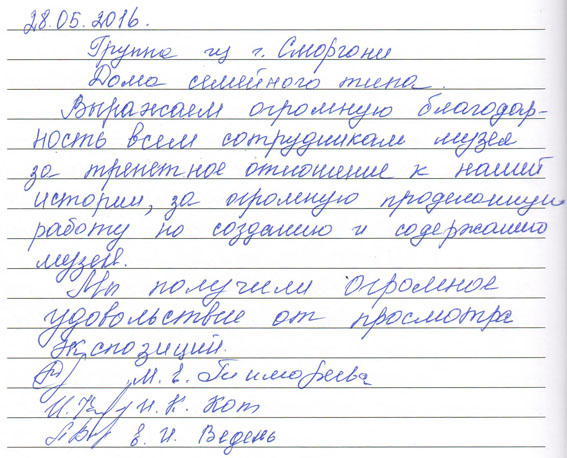 28.05.2016.
Группа из г. Сморгони
Дома семейного типа.
Выражаем огромную благодар-
ность всем сотрудникам музея
за трепетное отношение к нашей
истории, за огромную проделанную
работу по созданию и содержанию
музея.
Мы получили огромное
удовольствие от просмотра
экспозиций.
М. Е. Тимофеева
И. К. Кот
Е. И. Ведень